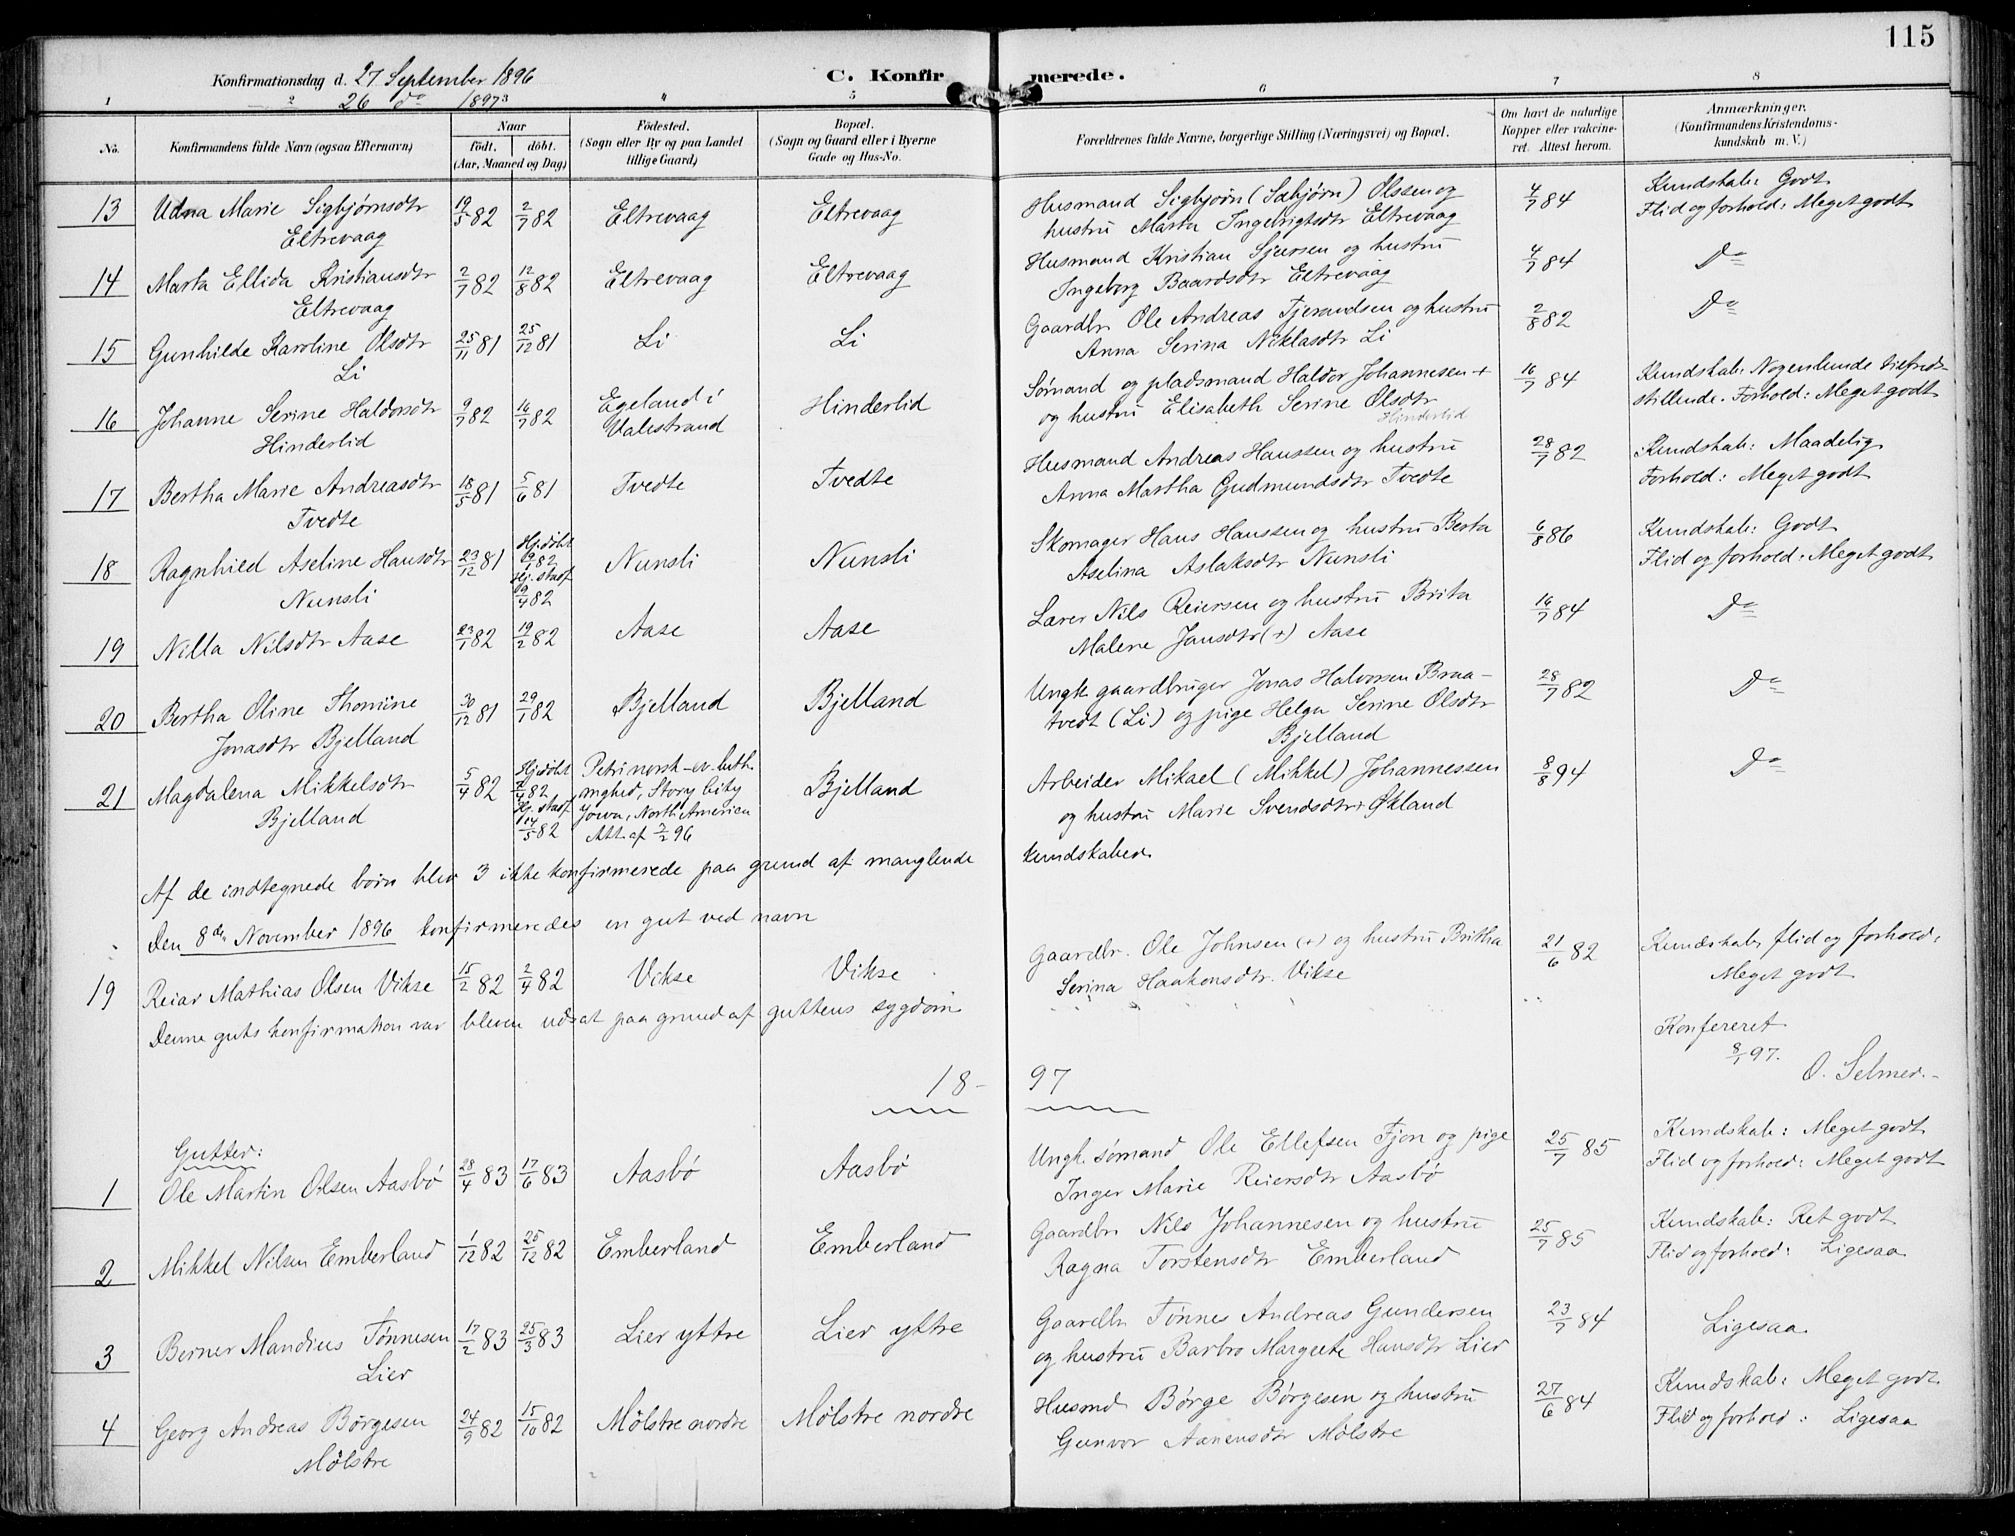 115
Konfirmationsdag d. 27 September 1896 C. Konfirmerede.
26 do 1897
1 2 3 4 5 6 7 8
No. Konfirmandens fulde Navn (ogsaa Efternavn) Naar födt. döbt. (Aar, Maaned og Dag) Födested. (Sogn eller By og paa Landet tillige Gaard) Bopæl. (Sogn og Gaard eller i Byerne Gade og Hus-No. Forældrenes fulde Navne, borgerlige Stilling (Næringsvei) og Bopæl. Om havt de naturlige Kopper eller vakcineret. Attest herom. Anmærkninger. (Konfirmandens Kristendomskundskab m. V.)
13 Udna Marie Sigbjørnsdtr 19/5 82 2/7 82 Eltrevaag Eltrevaag Husmand Sigbjørn (Sæbjørn) Olssen og 4/7 84 Kundskab: Godt
Eltrevaag hustru Marta Ingebrigtsdtr Eltrevaag Flid og forhold: Meget godt
14 Marta Ellida Kristiansdtr 2/7 82 12/8 82 Eltrevaag Eltrevaag Husmand Kristian Sjursen og hustru 4/7 84 Do
Eltrevaag Ingeborg Baardsdtr Eltrevaag
15 Gunhilde Karoline Olsdtr 25/11 81 25/12 81 Li Li Gaardbr Ole Andreas Tjerandsen og hustru 2/8 82 Do
Li Anna Serina Niklasdtr Li
16 Johanne Serine Haldorsdtr 9/7 82 16/7 82 Egeland i Valestrand Hinderlid Sømand og pladsmand Haldor Johannesen + 16/7 84 Kundskab: Nogenlunde tilfreds-
Hinderlid og hustru Elisabeth Serine Olsdtr Hinderlid stillende. Forhold: Meget godt
17 Bertha Marie Andreasdtr 18/5 81 5/6 81 Tvedte Tvedte Husmand Andreas Hanssen og hustru 28/7 82 Kundskab: Maadelig
Tvedte Anna Martha Gudmundsdtr Tvedte Forhold: Meget godt
18 Ragnhild Aseline Hansdtr 23/12 81 Hj.døbt 82 Hj. stadf. 82 Nunsli Nunsli Skomager Hans Hanssen og hustru Berta 6/8 86 Kundskab: Godt
Nunsli Aselina Aslaksdtr Nunsli Flid og forhold: Meget godt
19 Nilla Nilsdtr Aase 23/1 82 19/2 82 Aase Aase Lærer Nils Reiersen og hustru Brita 16/7 84 Do
Malene Jansdtr (+) Aase
20 Bertha Oline Thomine 30/12 81 29/1 82 Bjelland Bjelland Ungk. gaardbruger Jonas Halvorsen Braa- 28/7 82 Do
Jonasdtr Bjelland tvedt (Li) og pige Helga Serine Olsdtr
Bjelland
21 Magdalena Mikkelsdtr 5/4 82 Hj.døbt 82 Hj. stadf. 14/5 82 Petri norsk-ev. luth. mghed, Story City Jowa, North Amerien Att. af 3/2 96 Bjelland Arbeider Mikael (Mikkel) Johannessen 8/8 94 Do
Bjelland og hustru Marie Svendsdtr Økland
Af de indtegnede børn blev 3 ikke konfirmerede paa grund af manglende kundskaber
Den 8de November 1896 konfirmeredes en gut ved navn
19 Reiar Mathias Olsen Vikse 15/2 82 2/4 82 Vikse Vikse Gaardbr. Ole Johnsen (+) og hustru Britha 21/6 82 Kundskab, flid og forhold:
Serina Haakonsdtr. Vikse Meget godt
Denne guts konfirmation var bleven udsat paa grund af guttens sygdom
Konfereret
8/1 97.
O. Selmer.
18-97
Gutter:
1 Ole Martin Olsen Aasbø 28/4 83 17/6 83 Aasbø Aasbø Ungk. sømand Ole Ellefsen Fjon og pige 25/7 85 Kundskab: Meget godt
Inger Marie Reiersdtr Aasbø Flid og forhold: Meget godt
2 Mikkel Nilsen Emberland 1/12 82 25/12 82 Emberland Emberland Gaardbr Nils Johannesen og hustru 25/7 85 Kundskab: Ret godt
Ragna Torstensdtr Emberland Flid og forhold: Ligesaa
3 Berner Mandius Tønnesen 17/2 83 25/3 83 Lier yttre Lier yttre Gaardbr Tønnes Andreas Gundersen 23/7 84 Ligesaa
Lier og hustru Barbro Margrete Hansdtr Lier
4 Georg Andreas Børgesen 24/9 82 15/10 82 Mølstre nordre Mølstre nordre Husmd Børge Børgesen og hustru 27/6 84 Kundskab: Meget godt
Mølstre Gunvor Aanensdtr Mølstre Flid og forhold: Ligesaa